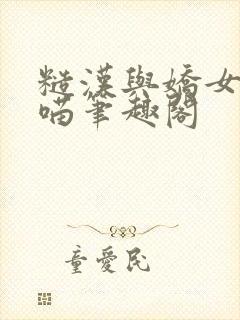 糙漢與嬌女
喵筆趣閣
童愛民